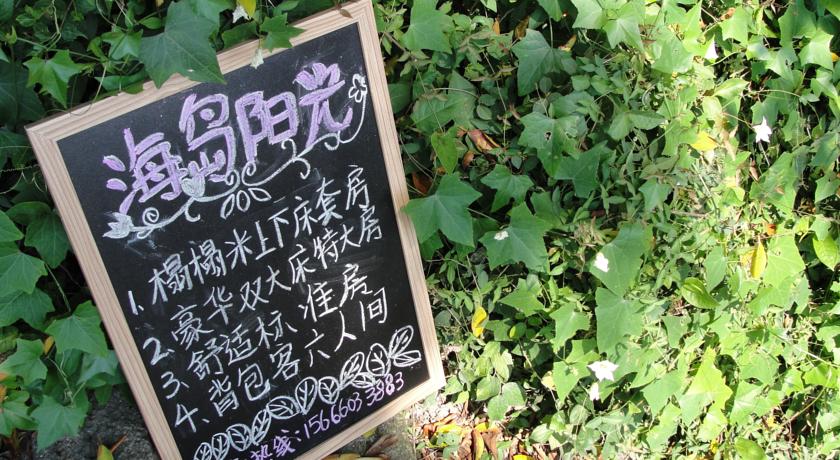 海岛阳光
1. 榻榻米上下床套房
2. 豪华双大床特大房
3. 舒适标准房
4. 背包客六人间
热线:15666033983